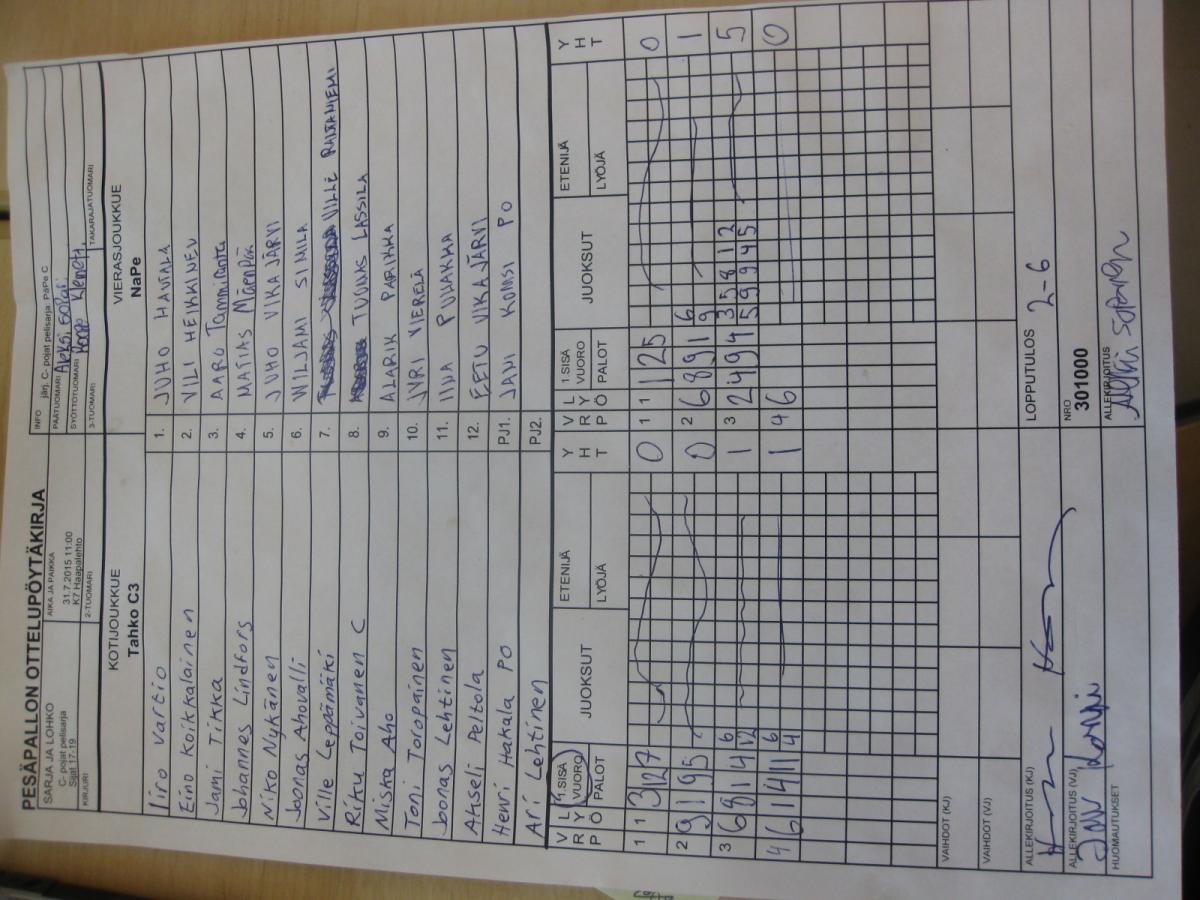 PESÄPALLON OTTELUPÖYTÄKIRJA
SARJA JA LOHKO
C- pojat pelisarja
Sijat 17-19
AIKA JA PAIKKA
31.7.2015 11:00
K7 Haapalehto
INFO järj. C- pojat pelisarja: PäPe C
PÄÄTUOMARI Aleksi Sopari
SYÖTTÖTUOMARI Klemets
KIRJURI
2-TUOMARI
3-TUOMARI
TAKARAJATUOMARI
KOTIJOUKKUE
Tahko C3
VIERASJOUKKUE
NaPe
Iiro Vartio 1. JUHO HAUTALA
Eino Koikkalainen 2. VILI HEIKKINEN
Jami Tikka 3. AARO Tammiranta
Johannes Lindfors 4. MATIAS Mäenpää
Niko Nykänen 5. JUHO VIKAJÄRVI
Joonas Ahovalli 6. WILJAMI SIMILÄ
Ville Leppämäki 7. VILLE RAUTANIEMI
Riku Toivanen C 8. TUUKAS LASSILA
Miska Aho 9. ALARIK PARIKKA
Toni Toropainen 10. JYRI VIERELÄ
Joonas Lehtinen 11. PUHAKKA
Akseli Peltola 12. EETU VIKAJÄRVI
Henri Hakala PO PJ1. JANI KOMSI PO
Ari Lehtinen PJ2.
V R P L Y Ö 1.SISÄ VUORO PALOT JUOKSUT ETENIJÄ LYÖJÄ Y H T V R P L Y Ö 1.SISÄ VUORO PALOT JUOKSUT ETENIJÄ LYÖJÄ Y H T
1 1 3 12 7 0 1 1 1 2 5 0
2 9 1 9 5 0 2 6 8 9 1 6 9 1
3 6 9 1 4 6 12 1 3 2 4 9 4 1 3 5 8 1 2 5
5 9 9 4 5
4 6 1 4 11 6 4 1 4 6 0
VAIHDOT (KJ)
VAIHDOT (VJ)
ALLEKIRJOITUS (KJ)
LOPPUTULOS 2-6
ALLEKIRJOITUS (VJ)
NRO
301000
HUOMAUTUKSET
ALLEKIRJOITUS